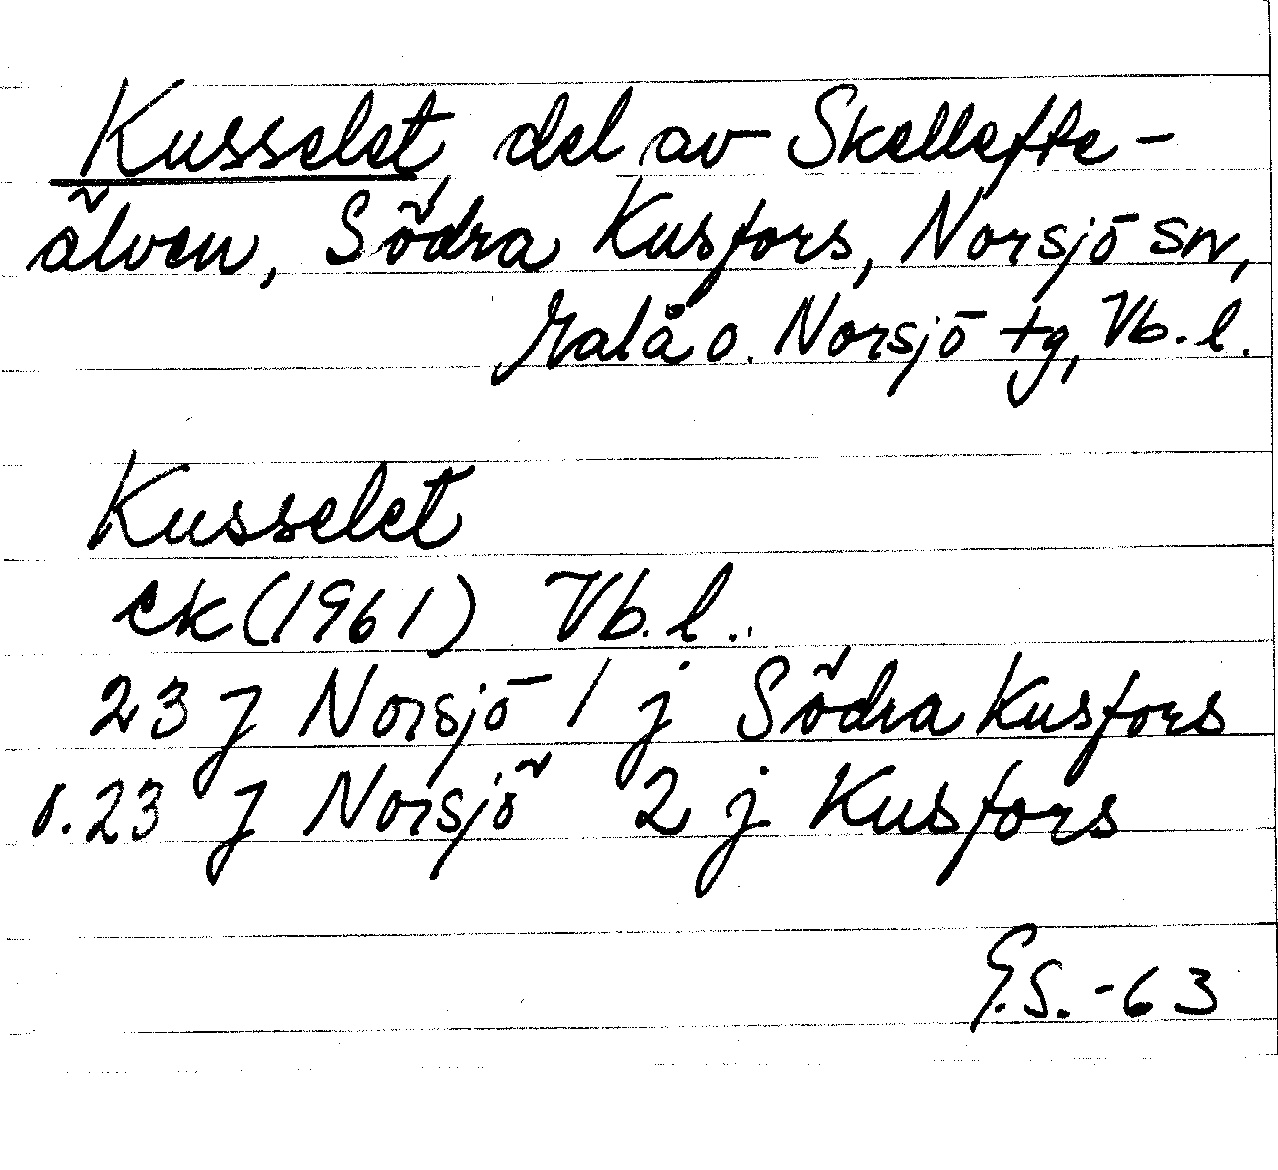 Kusselet, del av Skellefte-
älven, Södra Kusfors, Norsjö sn,
Malå o. Norsjö tg, Vb. l.
Kusselet
ek (1961) Vb. l.
23 J Norsjö 1 j Södra Kusfors
o. 23 J Norsjö 2 j Kusfors
G.S. -63